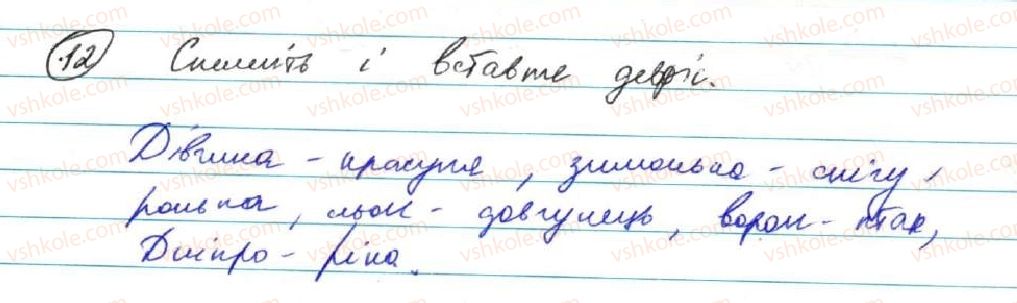 12 Спишіть і вставте дефіс.
Дівчина - красуня, зимонька - снігу
ронька, льон - довгунець, ворон - птах,
Дніпро - ріка.